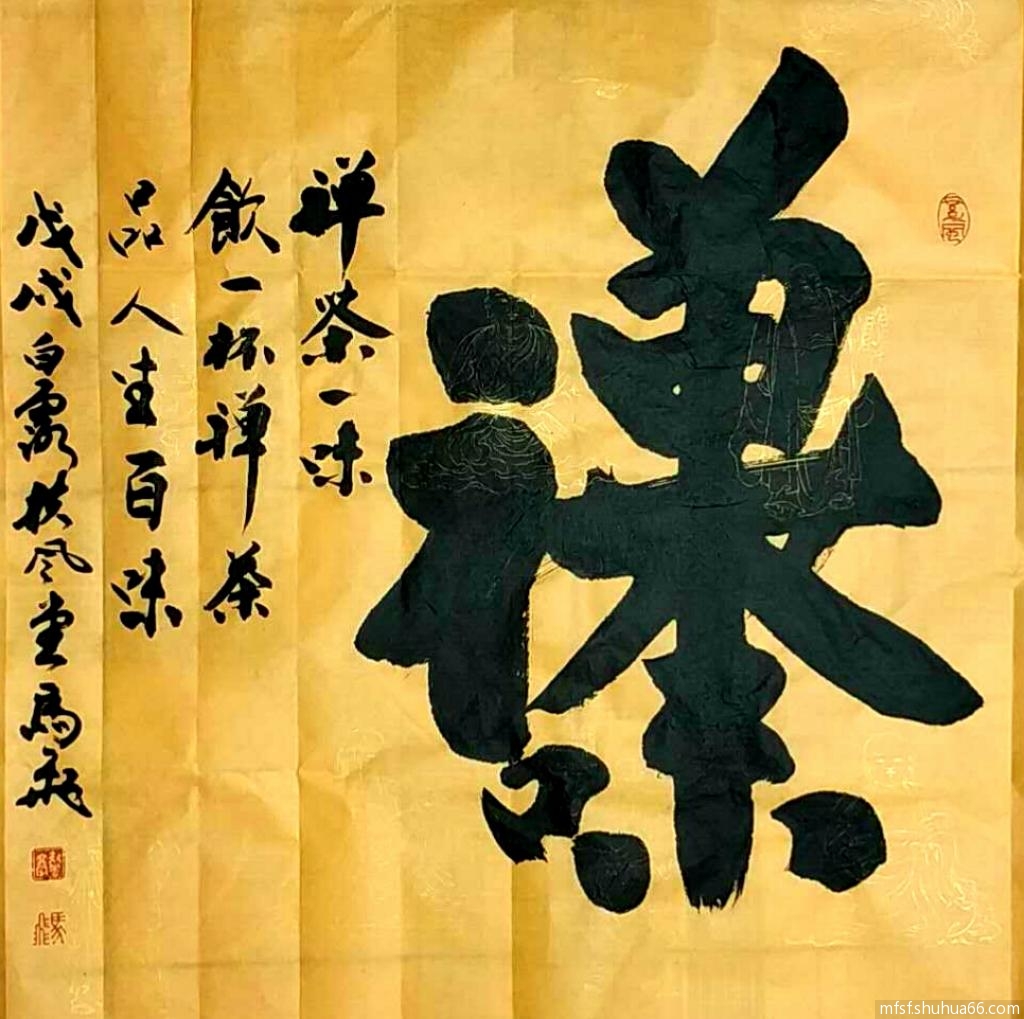 禅茶一味
飲一杯禅茶
品人生百味
戊戌白露扶风堂馬飛
mfsfshuhua66.com